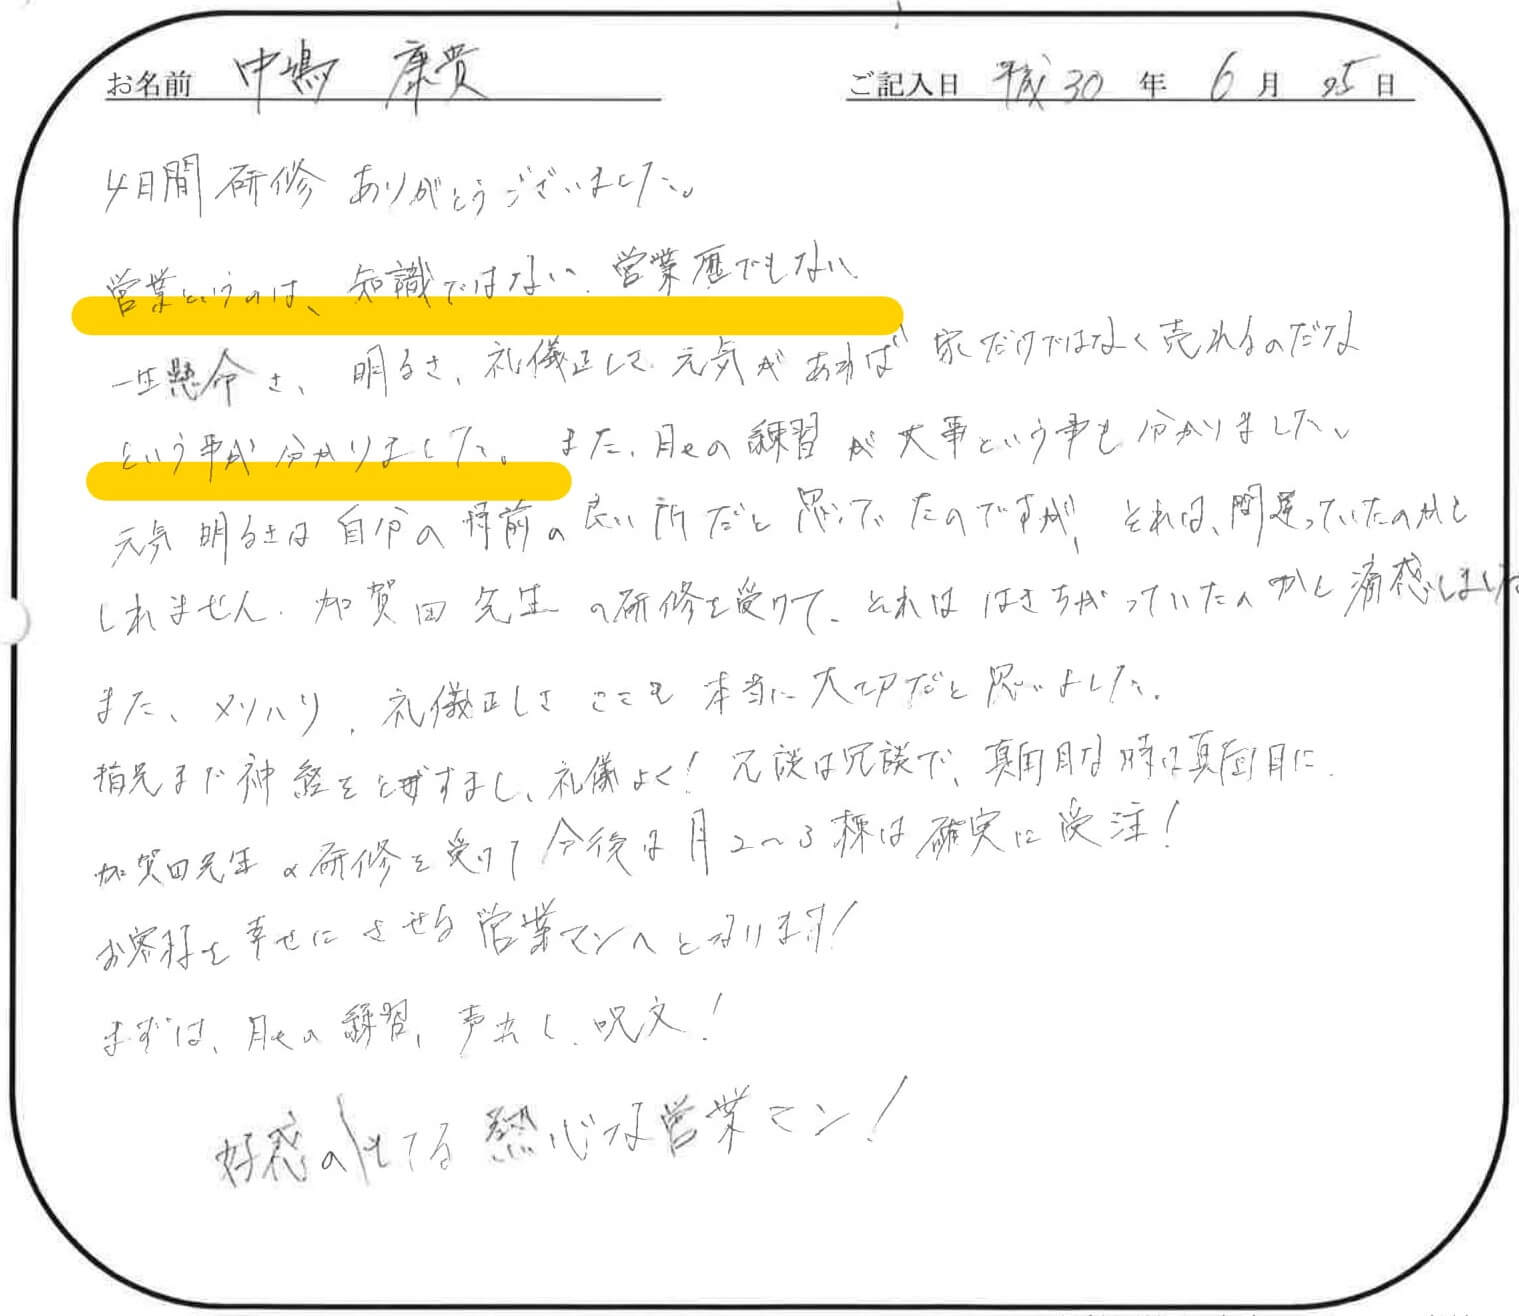 お名前 中嶋 康貴 ご記入日 平成30年6月25日
4日間研修ありがとうございました。
営業というのは、知識ではない、営業歴でもない、
一生懸命さ、明るさ、礼儀正しさ、元気があれば家だけではなく売れるのだな
という事が分かりました。また、日々の練習が大事という事も分かりました。
元気 明るさは自分の持前の良い所だと思っていたのですが、それは、間違っていたのかも
しれません。加賀田先生の研修を受けて、それははきちがっていたのかと痛感しました
また、メリハリ、礼儀正しさ ここも本当に大切だと思いました。
指先まで神経をとぎすまし、礼儀よく!冗談は冗談で、真面目な時は真面目に。
加賀田先生の研修を受けて今後は月2〜3棟は確実に受注!
お客様を幸せにさせる営業マンへとなります!
まずは、日々の練習、声出し、呪文!
好感のもてる熱心な営業マン!